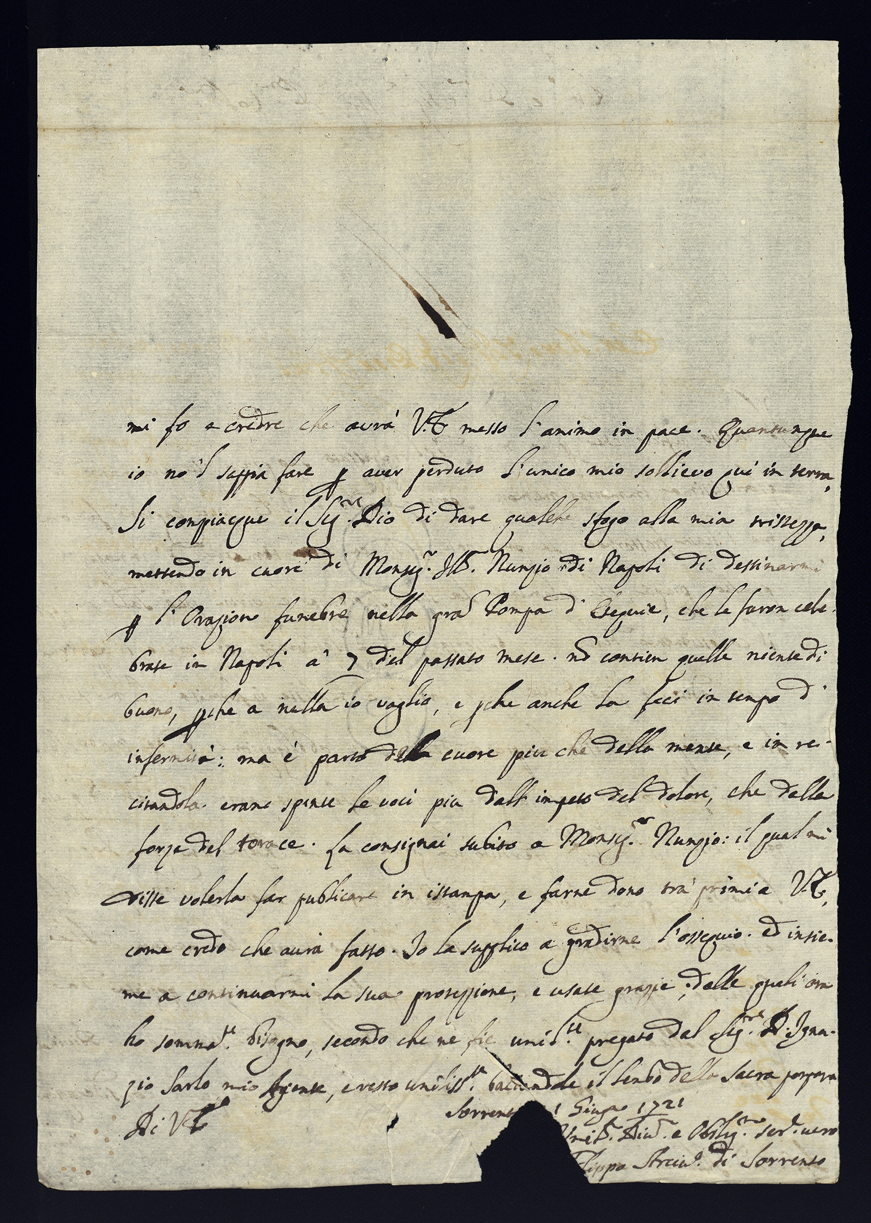 mi fo a credre che avrà V.E. messo l'animo in pace. Quantunque
io no'l sappia fare p aver perduto l'unico mio sollievo quì in terra,
Si compiacque il Sig.re Dio di dare qualche sfogo alla mia tristezza,
mettendo in cuore di Monsig.r Ill.mo Nunzio di Napoli di destinarmi
p l'Orazion funebre nella gra Pompa d'Esequie, che le furon cele-
brate in Napoli a' 7 del passato mese. nō contien quella niente di
buono, pche a nulla io vaglio, e pche anche la feci in tempo d'
infermità: ma è parto del cuore piu che della mente, e in re-
citandola erano spinte le voci piu dall'impeto del dolore, che dalla
forza del torace. La consignai subito a Monsig.or Nunzio: il qual mi
disse volerla far publicare in istampa, e farne dono tra' primi a V.E.,
come credo che aurà fatto. Io la supplico a gradirne l'ossequio. ed insie-
me a continuarmi la sua protezzione, e usate grazie, delle quali ora
ho somma.te bisogno, secondo che ne fie umil.te pregato dal Sig.re D. Igna-
zio Sarlo mio Agente, e resto umiliss.te baciandole il lembo della Sacra porpora
Di V.E. Sorrento 1 Giugno 1721
Umil.mo Div.mo e Oblig.mo ser.e vero
Filippo Arciv.o di Sorrento